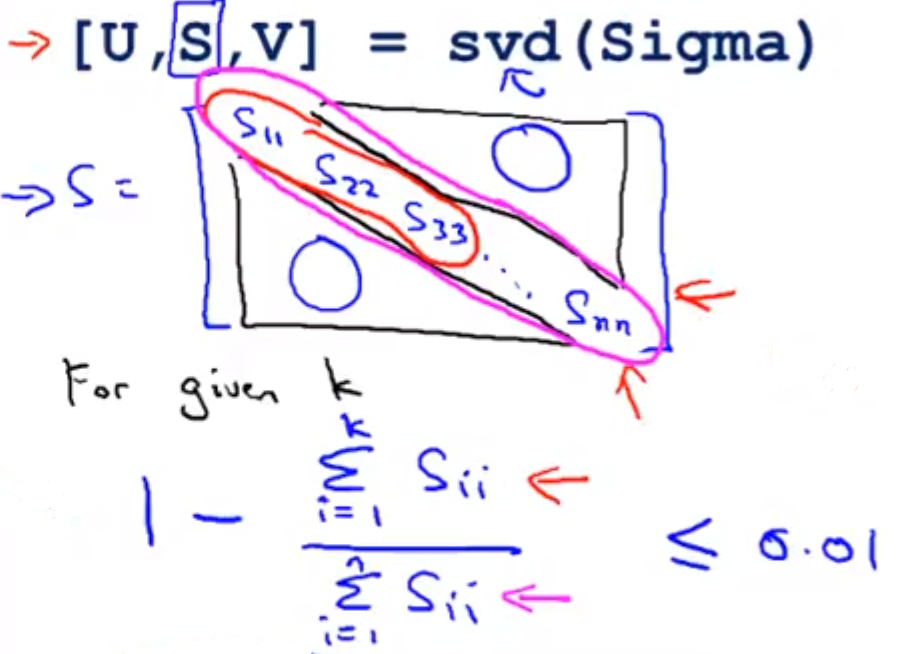 → [U,S,V] = svd(Sigma)
→ S = [S11 S22 S33 ⋱ Snn]
0
0
For given k
1 - (∑_{i=1}^{k} Sii) / (∑_{i=1}^{n} Sii) ≤ 0.01